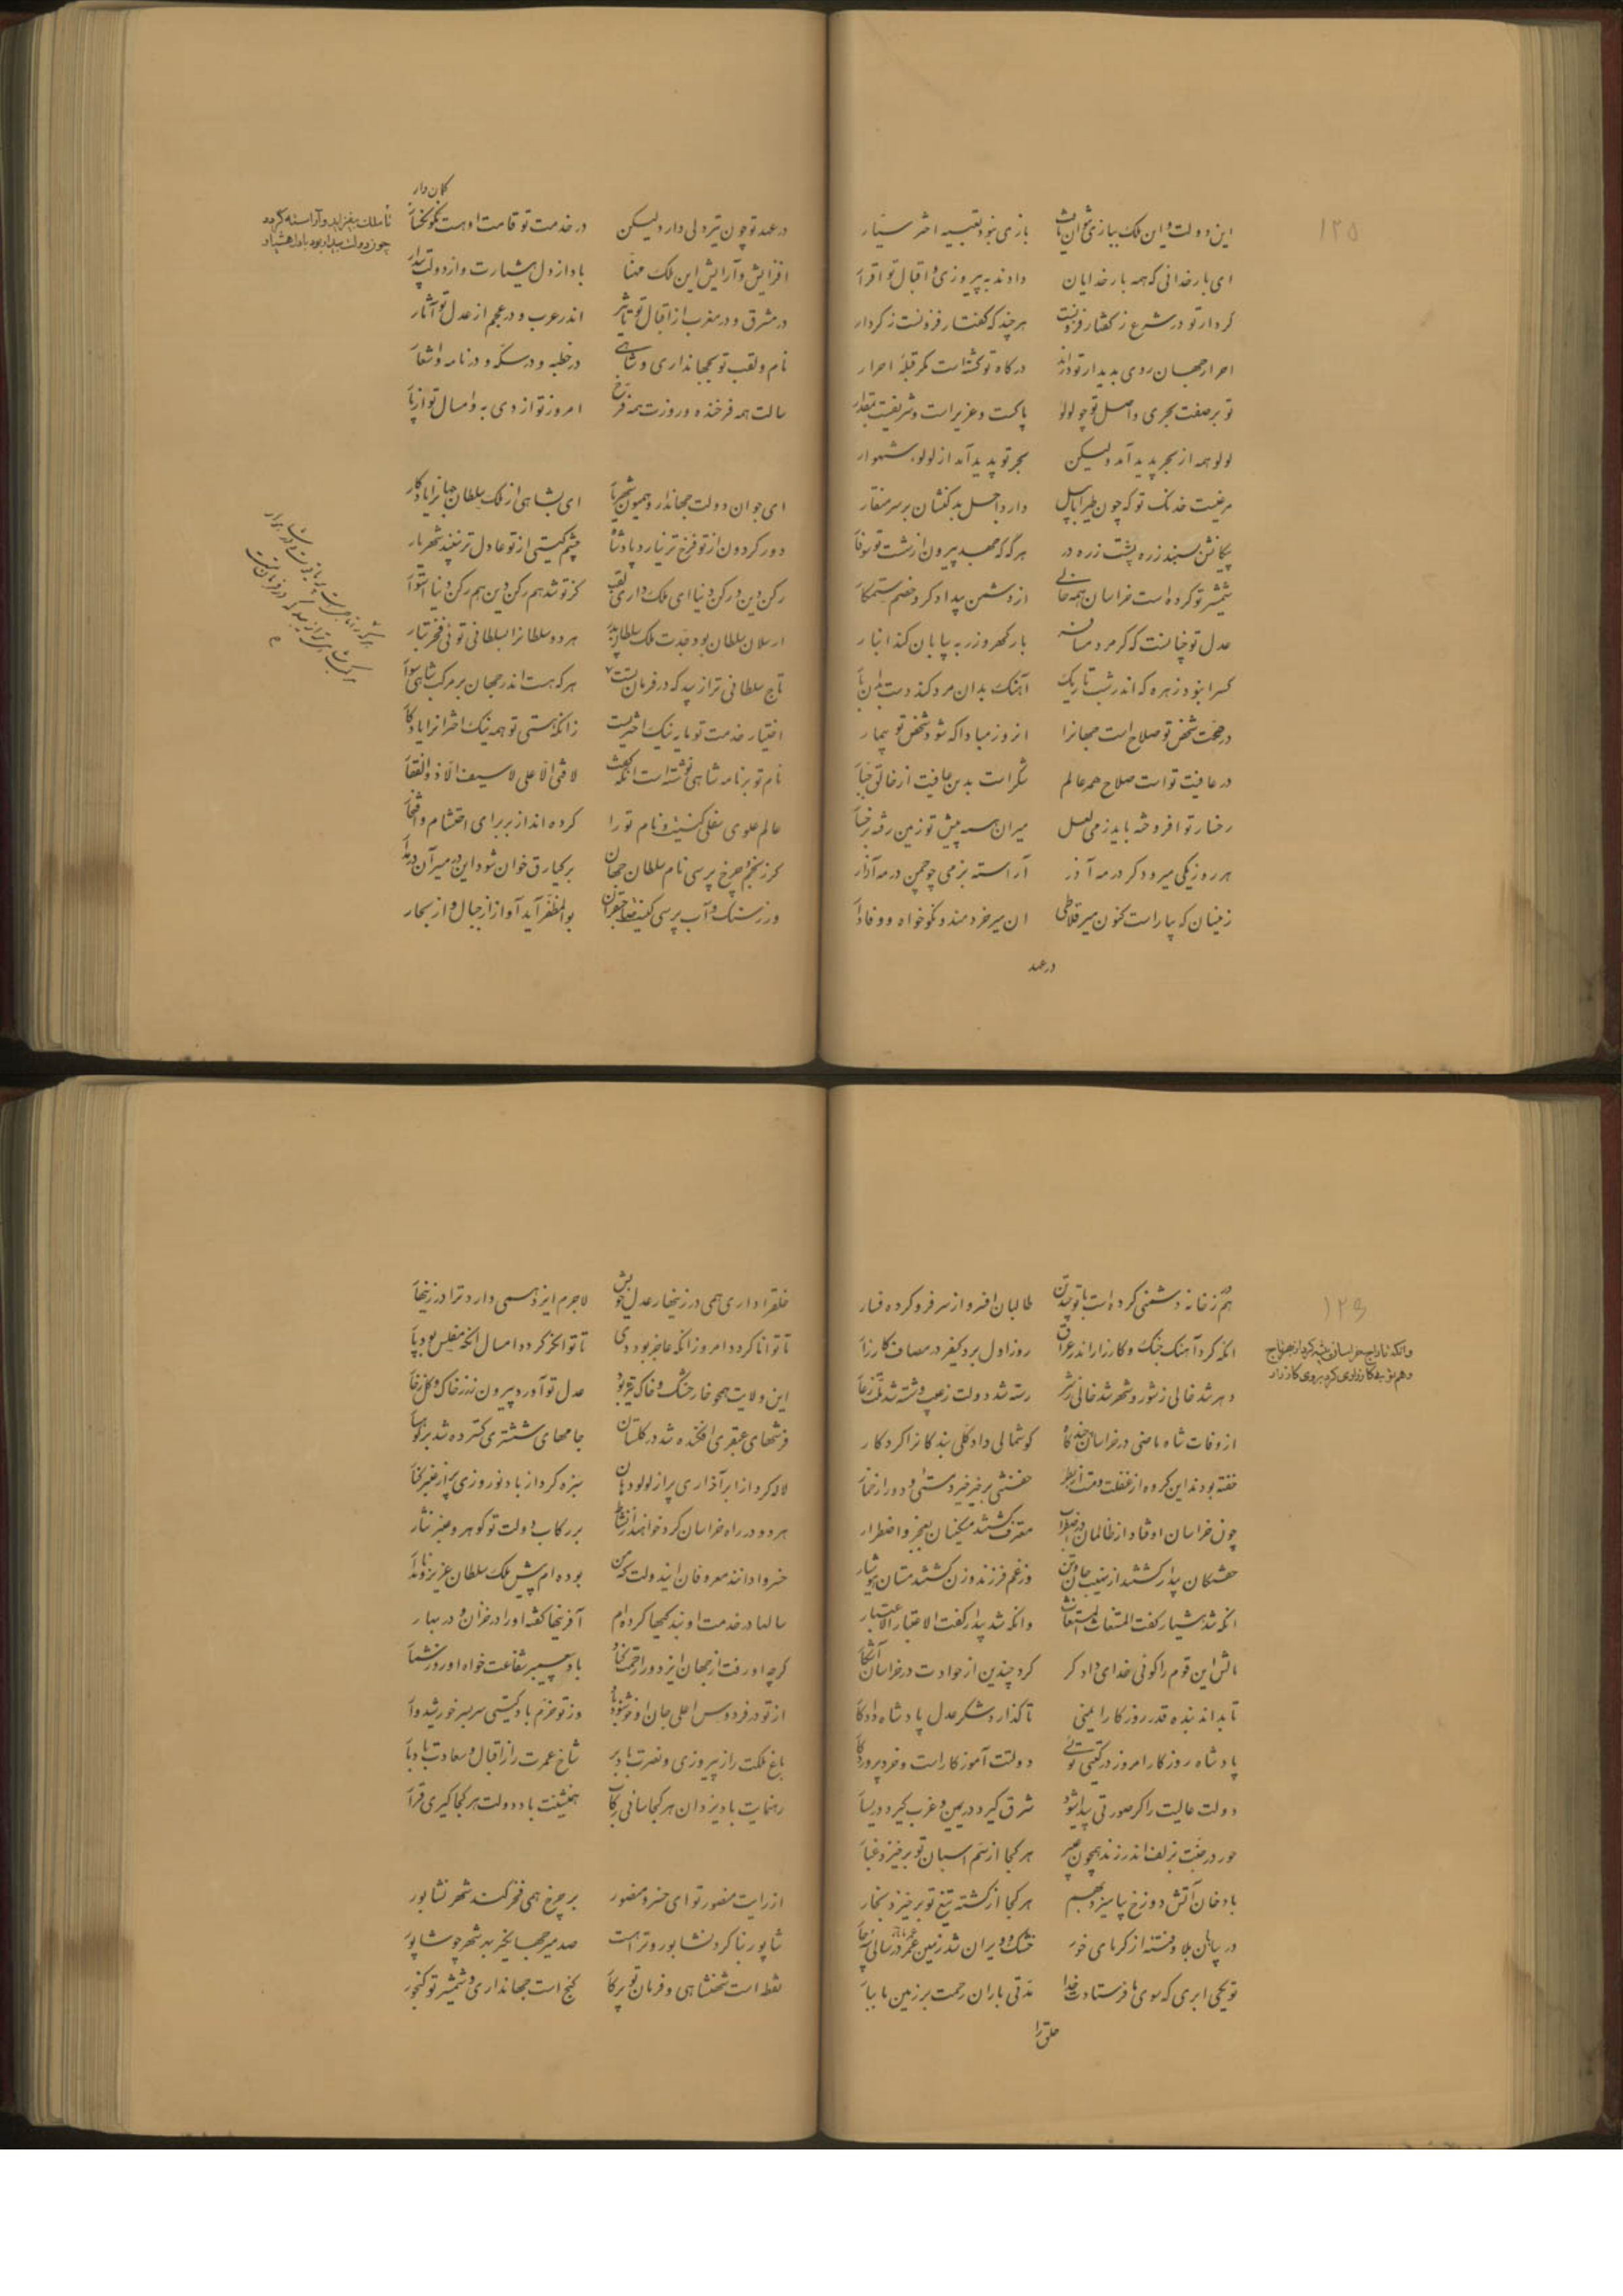 ۱۲۵
این دولت و این ملک ببازی نتوان یافت بازی نبود تعبیه اختر سیار
ای بار خدائی که همه بار خدایان دادند به پیروزی و اقبال تو اقرار
کردار تو در شرع ز گفتار فزونست هر چند که گفتار فزونست ز کردار
احرار جهان روی بدیدار تو دارند درگاه تو گشته است مگر قبله احرار
تو بر صفت بحری و اصل تو چو لولو پاکست و عزیز است و شریفست بمقدار
لولو همه از بحر پدید آمد و لیکن بحر تو پدید آمد از لولوء شهوار
مرغیست خدنگ تو که چون طیر ابابیل دارد اجل بدکنشان بر سر منقار
شمشیر تو کرده است خراسان همه خالی از دشمن بیدادگر و خصم ستمکار
عدل تو چنانست که گر مرد مسافر بار گهر و زر به بیابان کند انبار
کس را نبود زهره که اندر شب تاریک آهنگ بدان مرد کند دست بدان بار
در صحت شخص تو صلاح است جهانرا آن روز مبادا که شود شخص تو بیمار
در عافیت تو است صلاح همه عالم شکر است بدین عافیت از خالق جبار
رخسار تو افروخته باید ز می لعل میران سپه پیش تو زمین رفته برخسار
هر روز یکی میر و دگر در مه آذر آراسته بزمی چو چمن در مه آذار
زینسان که بیاراست کنون میر قلاطی آن میر خردمند و نکوخواه و وفادار
در عهد
در عهد تو چون تیر دلی دارد لیکن در خدمت تو قامت او هست نگونسار
کمان‌دار
تا ملک بیفزاید و آراسته گردد
چون دولت بیدار بود با دل هشیار
افزایش و آرایش این ملک مهنّا باد از دل هشیارت و از دولت بیدار
در مشرق و در مغرب از اقبال تو تاثیر اندر عرب و در عجم از عدل تو آثار
نام و لقب تو بجهانداری و شاهی در خطبه و در سکه و در نامه و اشعار
سالت همه فرخنده و روزت همه فرخ امروز تو از دی به و امسال تو از پار
ای جوان دولت جهاندار و همیون شهریار ای بشاهی از ملک سلطان جهانرا یادگار
دور گردون از تو فرخ تر نیارد پادشاه چشم گیتی از تو عادل تر نبیند شهریار
رکن دین و رکن دنیا ای ملک داری لقب کز تو شد هم رکن دین هم رکن دنیا استوار
ارسلان سلطان بود جدت ملک سلطان پدر هر دو سلطانرا بسلطانی توئی فخر تبار
تاج سلطانی ترا زیبد که در فرمان تست هر که هست اندر جهان بر مرکب شاهی سوار
اختیار خدمت تو مایه نیک اختریست زانکه هستی تو همه نیک اخترانرا یادگار
نام تو بر نامه شاهی نوشته است آنکه گفت لا فتی الا علی لا سیف الا ذوالفقار
عالم علوی و سفلی کنیت و نام تو را کرده‌اند از بر برای احتشام و افتخار
گر ز نجم و چرخ پرسی نام سلطان جهان برکیارق خوان شود این در مسیر آن در مدار
ور ز سنگ و آب پرسی کنیت صاحبقران بوالمظفر آید آواز از جبال و از بحار
۱۲۶
هم ز خانه دشمنی کرده است با تو چند تن طالبان افسر و از سر فرو کرده فسار
آنکه کرد آهنگ جنگ و کارزار اندر عراق روز اول برد کیفر در مصاف کارزار
وانکه تاراج خراسان پیشه کرد از بهر تاج
دهر شد خالی ز شور و شهر شد خالی ز شر
از وفات شاه ماضی در خراسان چندگاه گوشمالی داد کلی بندگانرا کردگار
خفته بودند این گروه از غفلت و مست از بطر
چون خراسان اوفتاد از ظالمان در اضطراب معترف گشتند مسکینان بعجز و اضطرار
خفتگان بیدار گشتند از نهیب جان و تن وز غم فرزند و زن گشتند مستان هوشیار
آنکه شد هشیار گفت المستغاث المستغاث وانکه شد بیدار گفت الاعتبار الاعتبار
مالش این قوم را گوئی خدای دادگر کرد چندین از حوادث در خراسان آشکار
تا بداند بنده قدر روزگار ایمنی تا گذارد شکر عدل پادشاه دادگار
پادشاه روزگار امروز در گیتی توئی دولتت آموزگار است و خرد پروردگار
دولت عالیت را گر صورتی پیدا شود شرق گیرد در یمین و غرب گیرد در یسار
حور در جنت بزلف اندر زند همچون عبیر هر کجا از سم اسبان تو برخیزد غبار
باد خان آتش دوزخ بیامیزد بهم هر کجا از کشته تیغ تو برخیزد بخار
در بیابان بلا و فتنه از گرمای خور خشک و ویران شد زمین
توئی ابری که سوی ما فرستادت خدا مدتی باران رحمت بر زمین ما ببار
خلق را
خلقرا داری همی در زینهار عدل خویش لاجرم ایزد همی دارد ترا در زینهار
تا توانا گردد امروز آنکه عاجز بود دی تا توانگر گردد امسال آنکه مفلس بود پار
این ولایت همچو خار خشک و خاک تیره بود عدل تو آورد بیرون زر ز خاک و گل ز خار
فرشهای عبقری افکنده شد در گلستان جامهای ششتری گسترده شد بر کوهسار
لاله کرد از ابر آذاری پر از لولو دهان سبزه کرد از باد نوروزی پر از عنبر کنار
هر دو در راه خراسان کرد خواهند از نشاط بر رکاب دولت تو گوهر و عنبر نثار
خسروا دانند معروفان این دولت که من بوده‌ام پیش ملک سلطان عزیز و نامدار
سالها در خدمت او بندگیها کرده‌ام آفرینها گفته او را در خزان و در بهار
گرچه او رفت از جهان ایزد ورا رحمت کناد باد پیغمبر شفاعت خواه او روز شمار
از تو در فردوس اعلی جان او خوشنود باد وز تو خرم باد گیتی سر بسر خورشیدوار
باغ ملکت را ز پیروزی و نصرت باد بر شاخ عمرت را ز اقبال و سعادت باد بار
رهنمایت باد یزدان هر کجا سائی رکاب همنشینت باد دولت هر کجا گیری قرار
از رایت منصور تو ای خسرو منصور بر چرخ همی فخر کند شهر نشابور
شاپور بنا کرد نشابور و ترا هست صد میر جهانگیر به هر شهر چو شاپور
نقطه است شهنشاهی و فرمان تو پرگار گنج است جهانداری و شمشیر تو گنجور